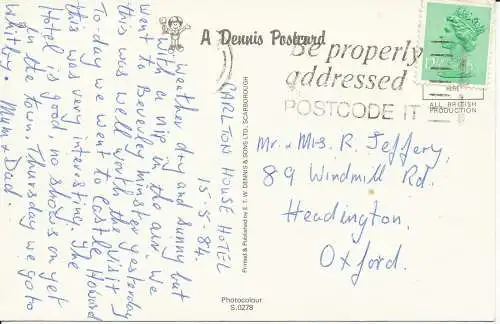 A Dennis Postcard
Be properly
addressed
POSTCODE IT
ALL BRITISH
PRODUCTION
CARLTON HOUSE HOTEL
15-5-84.
weather dry and sunny but
with a nip in the air. We
went to Beverley minster yesterday
this was well worth the visit
To-day we went to Castle Howard
this was very interesting. The
Hotel is good, no shows on yet
in the town. Thursday we go to
Whitby. Mum & Dad.
Printed & Published by E. T. W. DENNIS & SONS LTD., SCARBOROUGH
Mr. & Mrs. R. Jeffery,
89 Windmill Rd.
Headington,
Oxford.
Photocolour
S.0278